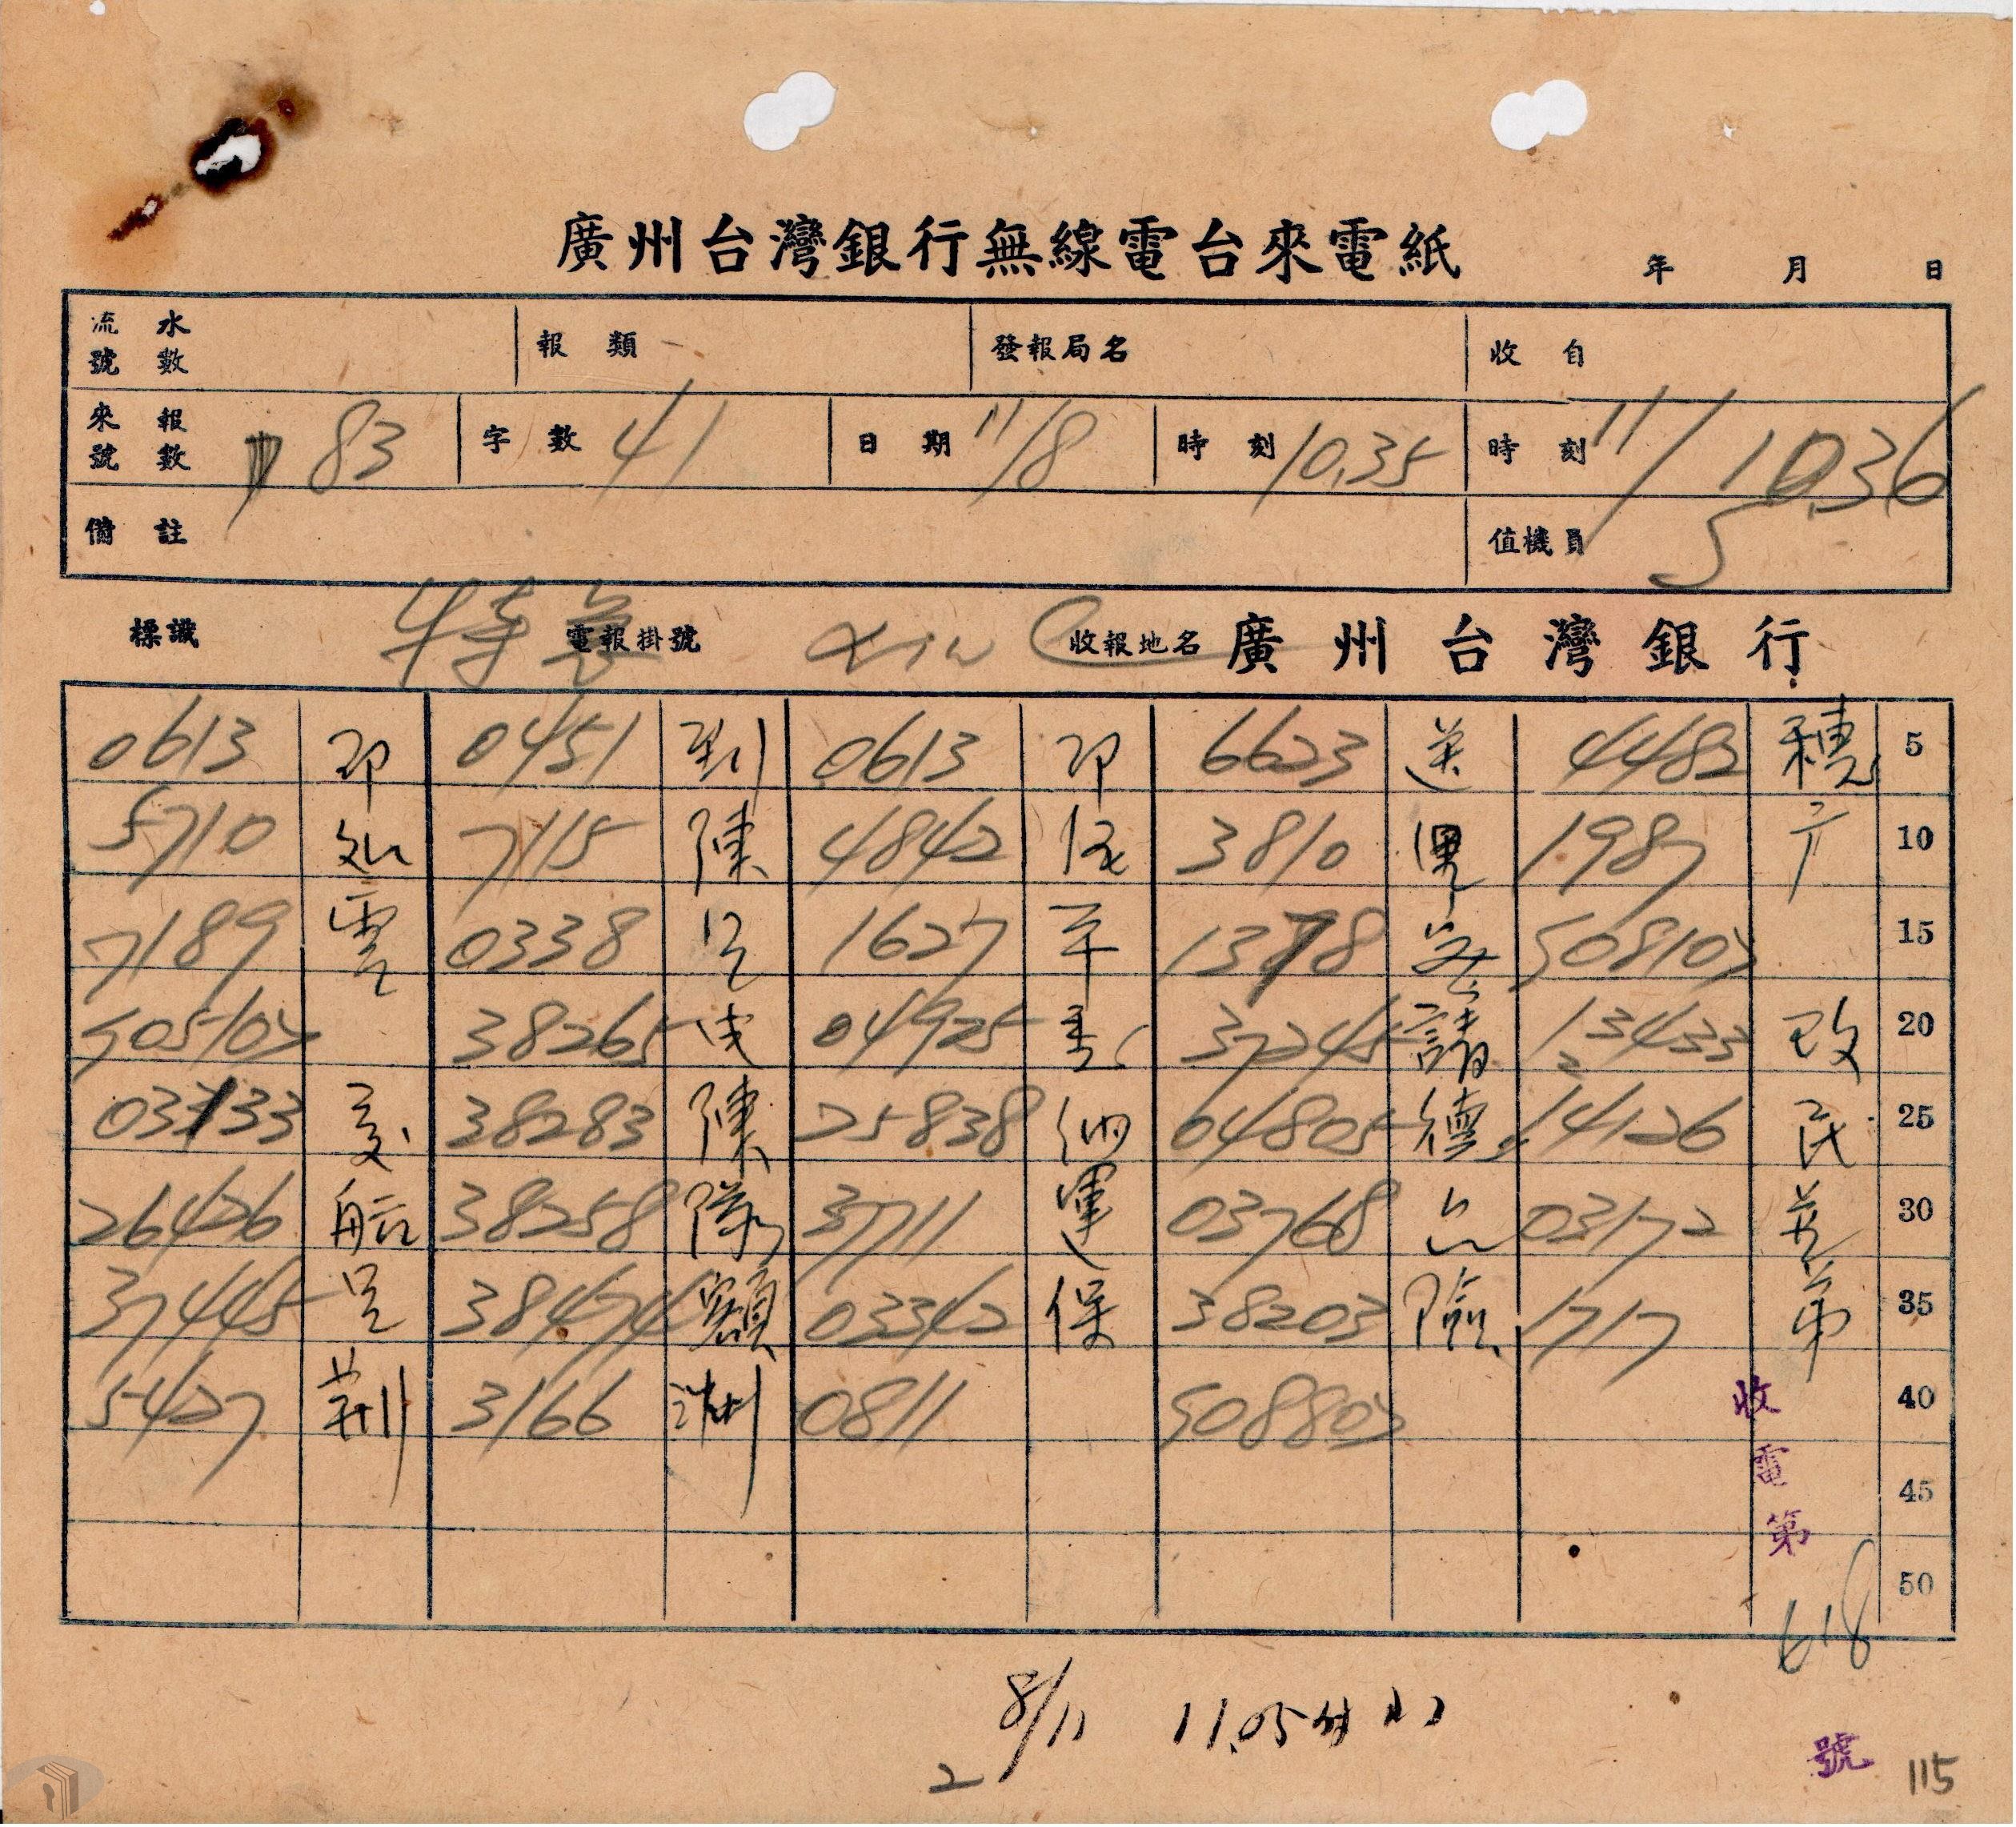 廣州台灣銀行無線電台來電紙
年 月 日
流水號數 報類 發報局名 收自
來報號數 83 字數 41 日期 11/8 時刻 10.35 時刻 11/ 10.36
備註 值機員
標識 特急 電報掛號 收報地名 廣州台灣銀行
0613 即 0451 到 0613 即 6623 送 4482 穗 5
5710 7115 陳 4842 3810 1987 10
7189 雲 0338 1627 平 1378 508105 15
505105 38265 04925 37245 請 13433 20
03133 交 38283 陳 25838 納 04805 德 14126 民 25
26426 航 38258 隊 3711 運 03768 03172 并 30
37445 38474 額 03342 保 38203 險 1717 弟 35
5427 荊 3166 洲 0811 508805 40
45
50
收電第 618 號
8/11 11.05
2
115